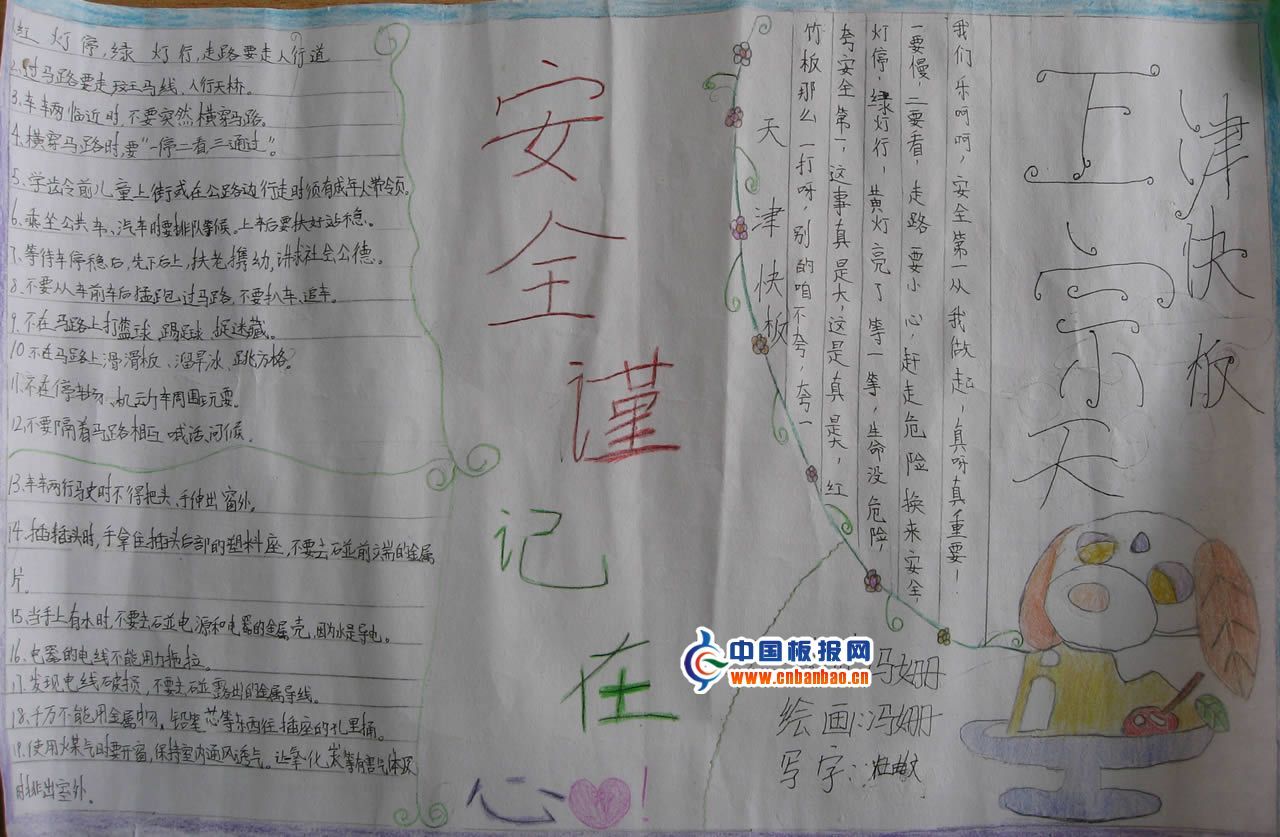 红灯停,绿灯行,走路要走人行道
2.过马路要走斑马线、人行天桥。
3.车辆临近时,不要突然横穿马路。
4.横穿马路时,要"一停二看,三通过"。
5、学龄前儿童上街或在公路边行走时须有成年人带领。
6、乘坐公共车、汽车时要排队等候。上车后要扶好站稳。
7、等待车停稳后,先下后上,扶老携幼,讲求社会公德。
8、不要从车前车后猛跑过马路,不要扒车、追车。
9、不在马路上打篮球、踢足球、捉迷藏。
10不在马路上滑滑板、溜旱冰、跳方格?
11、不在停车场、机动车周围玩耍。
12、不要隔着马路相互喊话、问候。
13、车辆行驶时不得把头、手伸出窗外。
14、插插头时,手拿住插头后部的塑料座,不要去碰前端的金属
片。
15、当手上有水时,不要去碰电源和电器的金属壳,因为水是导电。
16、电器的电线不能用力拖拉。
17、发现电线破损,不要去碰露出的金属导线。
18、千万不能用金属物,铅笔芯等东西往插座的孔里捅。
19、使用煤气时要开窗,保持室内通风透气。让氧化炭等有害气体及
时排出室外。
安全谨记在心!
津快板
天津快板
我们乐呵呵,安全第一从我做起,真呀真重要!
一要慢,二要看,走路要小心,赶走危险换来安全
灯停,绿灯行,黄灯亮了等一等,生命没危险,
夸安全第一,这事真是大,这是真是大,红
竹板那么一打呀,别的咱不夸,夸一
冯姗
绘画:冯姗
写字:
中国板报网
www.cnbanbao.cn